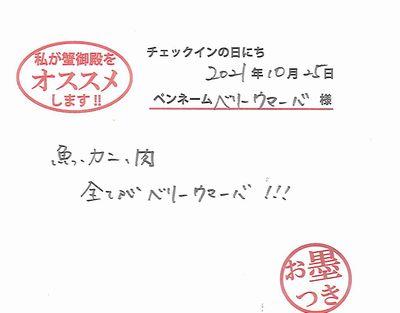 私が蟹御殿を
オススメ
します!!
チェックインの日にち
2021年10月25日
ペンネーム ベリーウマーバ 様
魚、カニ、肉
全てがベリーウマーバ!!!
お墨
つき